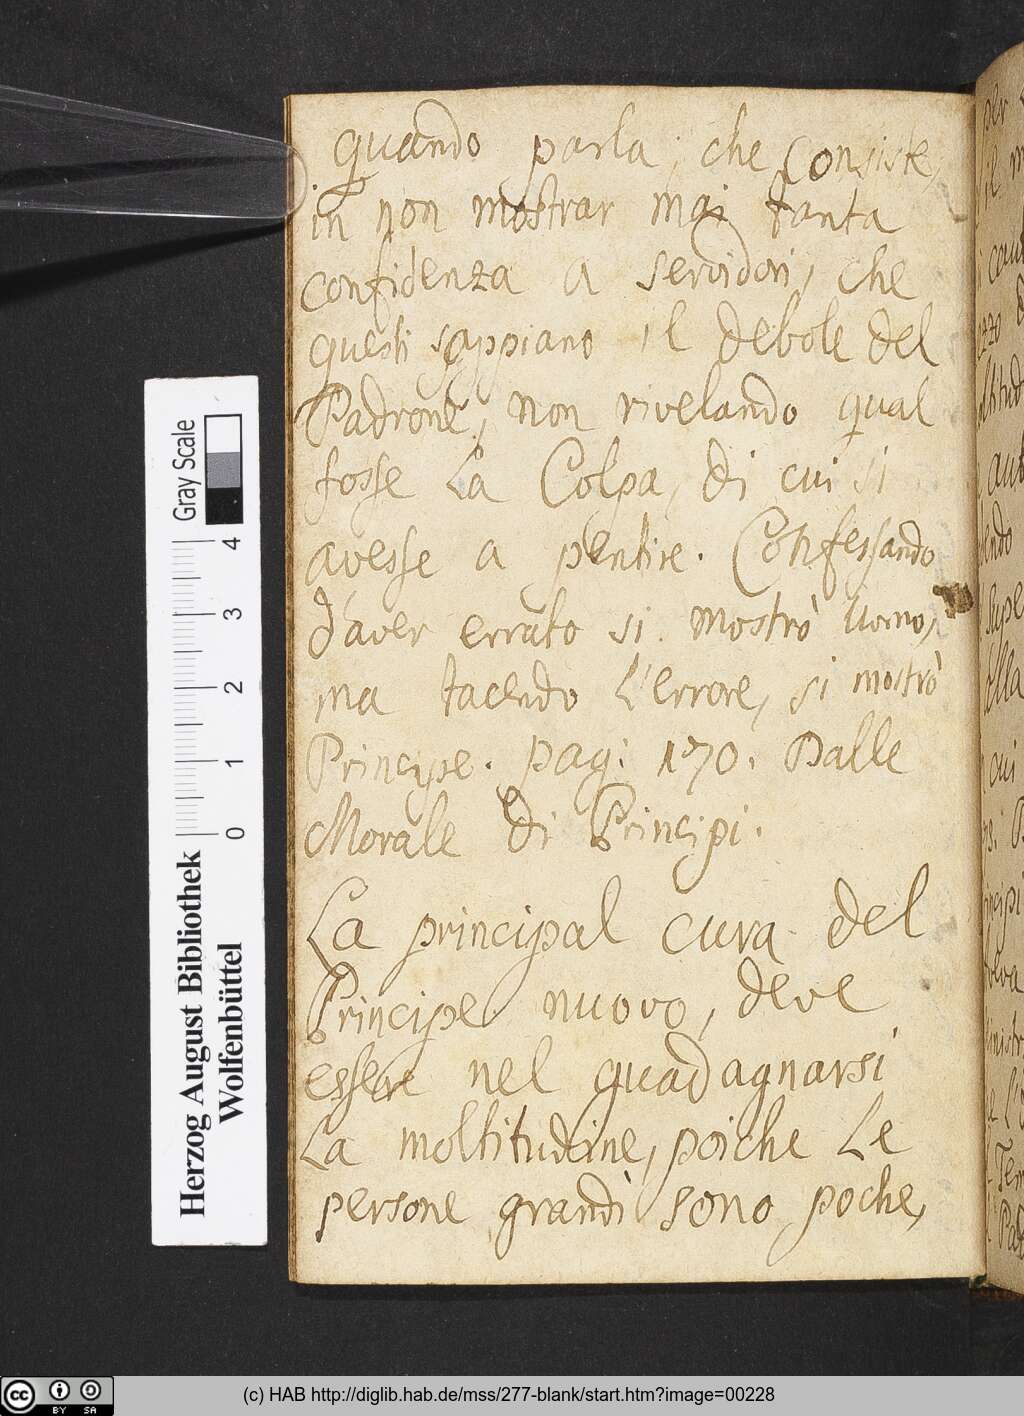 quando parla, che consiste,
in non mostrar mai tanta
confidenza a servidori, che
questi sappiano il debole del
Padrone, non rivelando qual
fosse La Colpa, di cui si
avesse a pentire. Confessando
d'aver errato si mostrò Uomo,
ma tacendo L'errore, si mostrò
Principe. pag: 170. Dalle
Morale di Principi.
La principal cura del
Principe nuovo, deve
essere nel guadagnarsi
La moltitudine, poiche Le
persone grandi sono poche,
Gray Scale
4
3
2
1
0
Herzog August Bibliothek
Wolfenbüttel
cc BY SA
(c) HAB http://diglib.hab.de/mss/277-blank/start.htm?image=00228